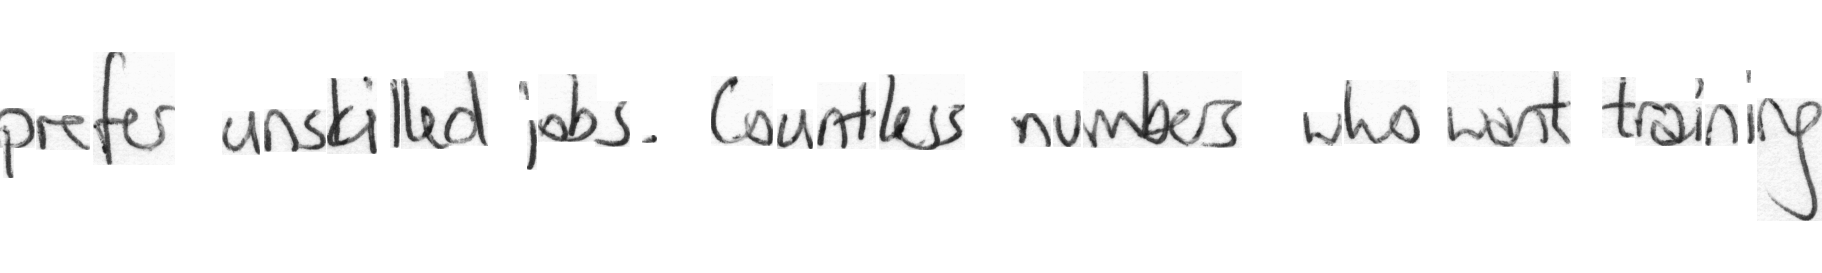 prefer unskilled jobs. Countless numbers who want training